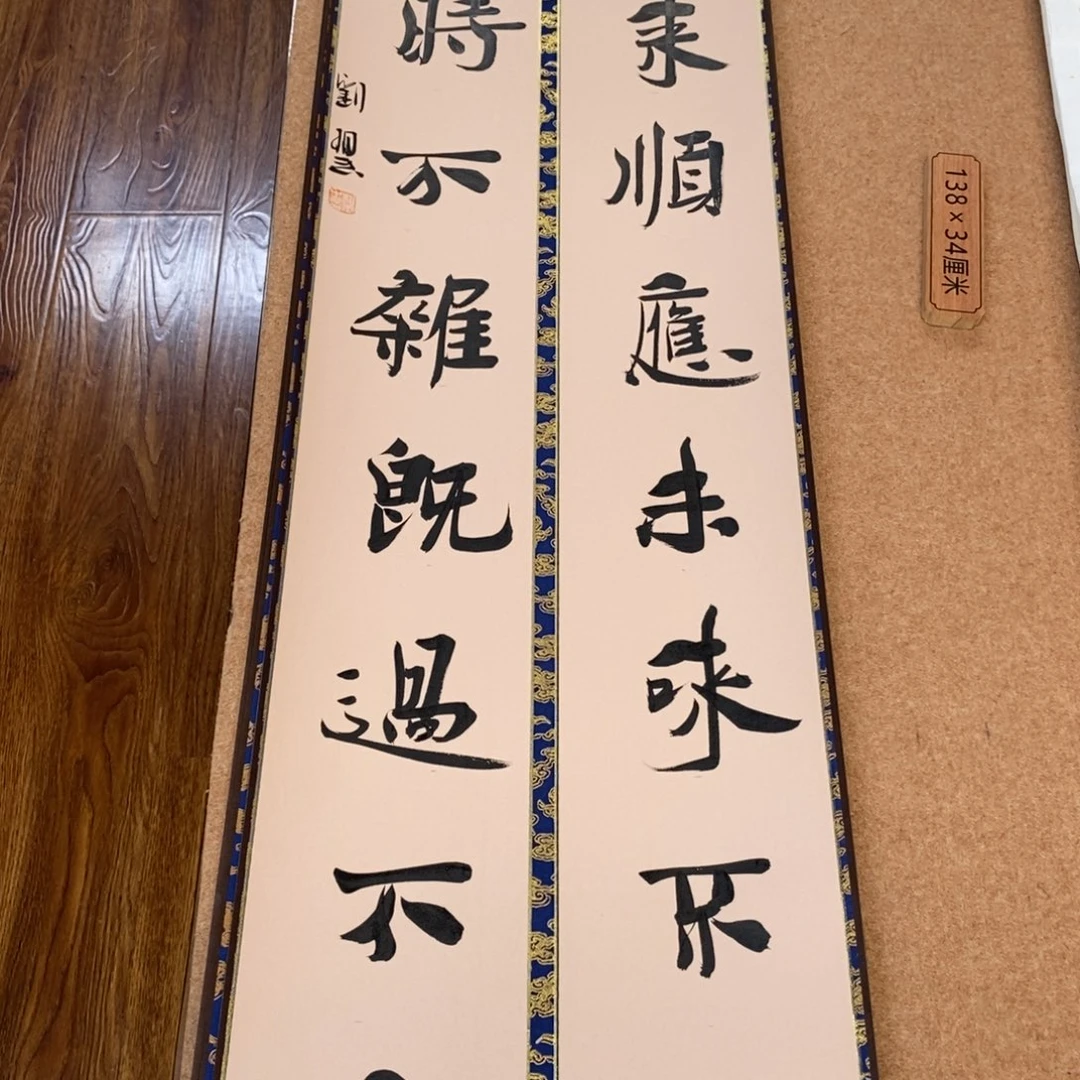 來順應未來不
時不雜既過不
劉
138 x 34厘米